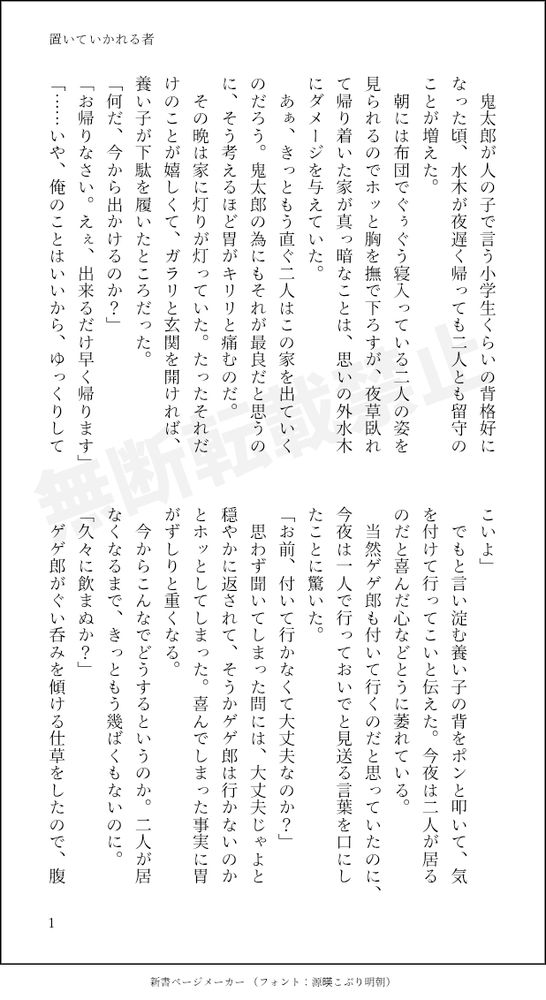 置いていかれる者
鬼太郎が人の子で言う小学生くらいの背格好に
なった頃、水木が夜遅く帰っても二人とも留守の
ことが増えた。
朝には布団でぐぅぐう寝入っている二人の姿を
見られるのでホッと胸を撫で下ろすが、夜草臥れ
て帰り着いた家が真っ暗なことは、思いの外水木
にダメージを与えていた。
あぁ、きっともう直ぐ二人はこの家を出ていく
のだろう。鬼太郎の為にもそれが最良だと思うの
に、そう考えるほど胃がキリリと痛むのだ。
その晩は家に灯りが灯っていた。たったそれだ
けのことが嬉しくて、ガラリと玄関を開ければ、
養い子が下駄を履いたところだった。
「何だ、今から出かけるのか？」
「お帰りなさい。えぇ、出来るだけ早く帰ります」
「……いや、俺のことはいいから、ゆっくりして
こいよ」
でもと言い淀む養い子の背をポンと叩いて、気
を付けて行ってこいと伝えた。今夜は二人が居る
のだと喜んだ心などとうに萎れている。
当然ゲゲ郎も付いて行くのだと思っていたのに、
今夜は一人で行っておいでと見送る言葉を口にし
たことに驚いた。
「お前、付いて行かなくて大丈夫なのか？」
思わず聞いてしまった問には、大丈夫じゃよと
穏やかに返されて、そうかゲゲ郎は行かないのか
とホッとしてしまった。喜んでしまった事実に胃
がずしりと重くなる。
今からこんなでどうするというのか。二人が居
なくなるまで、きっともう幾ばくもないのに。
「久々に飲まぬか？」
ゲゲ郎がぐい呑みを傾ける仕草をしたので、腹
1
無断転載禁止
新書ページメーカー（フォント：源暎こぶり明朝）